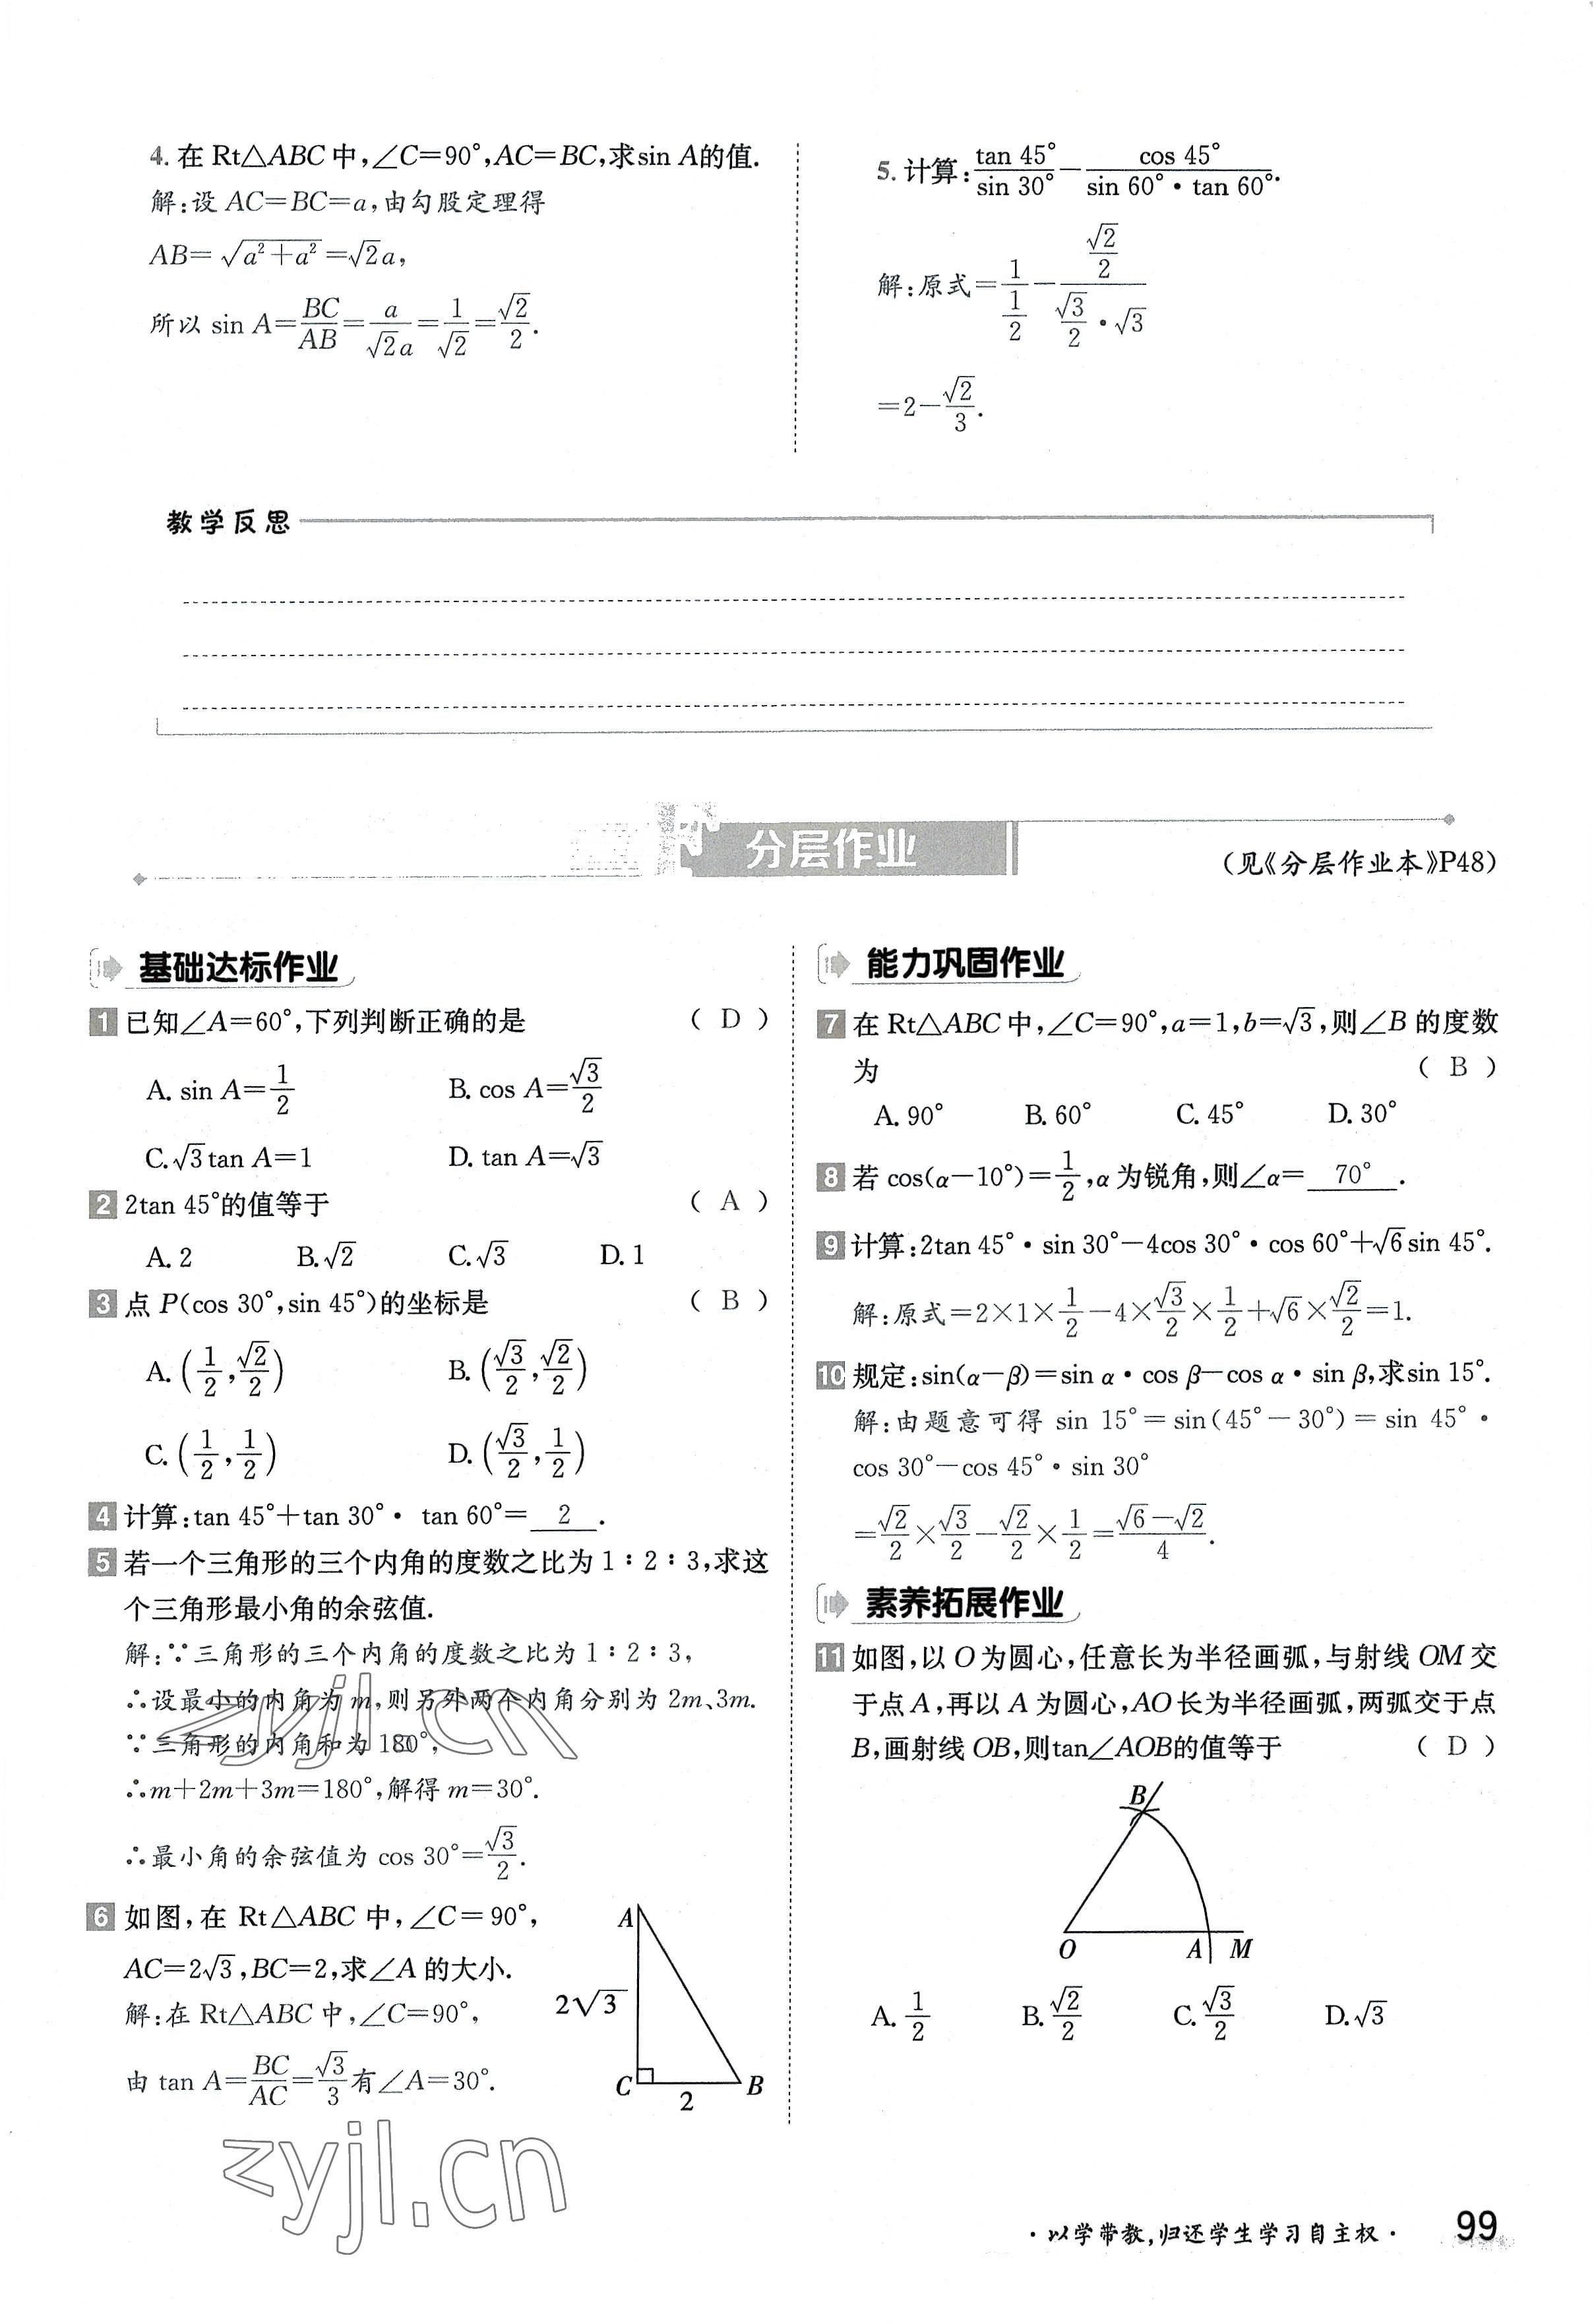 4. 在 Rt△ABC 中,∠C=90°,AC=BC,求sin A的值.
解:设 AC=BC=a,由勾股定理得
AB=√(a²+a²)=√2a,
所以 sin A=BC/AB=a/(√2a)=1/√2=√2/2.
5. 计算:tan 45°/sin 30°-cos 45°/(sin 60°·tan 60°).
解:原式=1/(1/2)-(√2/2)/(√3/2·√3)
=2-√2/3.
教学反思
分层作业
(见《分层作业本》P48)
基础达标作业
1 已知∠A=60°,下列判断正确的是 ( D )
A. sin A=1/2 B. cos A=√3/2
C.√3tan A=1 D. tan A=√3
2 2tan 45°的值等于 ( A )
A. 2 B.√2 C.√3 D. 1
3 点 P(cos 30°,sin 45°)的坐标是 ( B )
A.(1/2,√2/2) B.(√3/2,√2/2)
C.(1/2,1/2) D.(√3/2,1/2)
4 计算:tan 45°+tan 30°· tan 60°= 2 .
5 若一个三角形的三个内角的度数之比为 1∶2∶3,求这
个三角形最小角的余弦值.
解:∵三角形的三个内角的度数之比为 1∶2∶3,
∴设最小的内角为 m,则另外两个内角分别为 2m、3m.
∵三角形的内角和为 180°,
∴m+2m+3m=180°,解得 m=30°.
∴最小角的余弦值为 cos 30°=√3/2.
6 如图,在 Rt△ABC 中,∠C=90°,
AC=2√3,BC=2,求∠A 的大小.
解:在 Rt△ABC 中,∠C=90°,
由 tan A=BC/AC=√3/3有∠A=30°.
A
2√3
C
B
2
能力巩固作业
7 在 Rt△ABC 中,∠C=90°,a=1,b=√3,则∠B 的度数
为 ( B )
A. 90° B. 60° C. 45° D. 30°
8 若 cos(α-10°)=1/2,α 为锐角,则∠α= 70° .
9 计算:2tan 45°·sin 30°-4cos 30°·cos 60°+√6sin 45°.
解:原式=2×1×1/2-4×√3/2×1/2+√6×√2/2=1.
10 规定:sin(α-β)=sin α·cos β-cos α·sin β,求sin 15°.
解:由题意可得 sin 15°=sin(45°-30°)=sin 45°·
cos 30°-cos 45°·sin 30°
=√2/2×√3/2-√2/2×1/2=(√6-√2)/4.
素养拓展作业
11 如图,以 O 为圆心,任意长为半径画弧,与射线 OM 交
于点 A,再以 A 为圆心,AO 长为半径画弧,两弧交于点
B,画射线 OB,则tan∠AOB的值等于 ( D )
B
O
A
M
A. 1/2 B. √2/2 C. √3/2 D.√3
zyjl.cn
zyjl.cn
·以学带教,归还学生学习自主权·
99